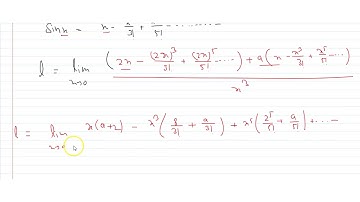 sin x = x - x³/3! + x⁵/5! ....
l = lim x→0 ((2x - (2x)³/3! + (2x)⁵/5! ....) + a(x - x³/3! + x⁵/5! ....)) / x³
l = lim x→0 x(a+2) - x³(8/3! + a/3!) + x⁵(2⁵/5! + a/5!) + ....